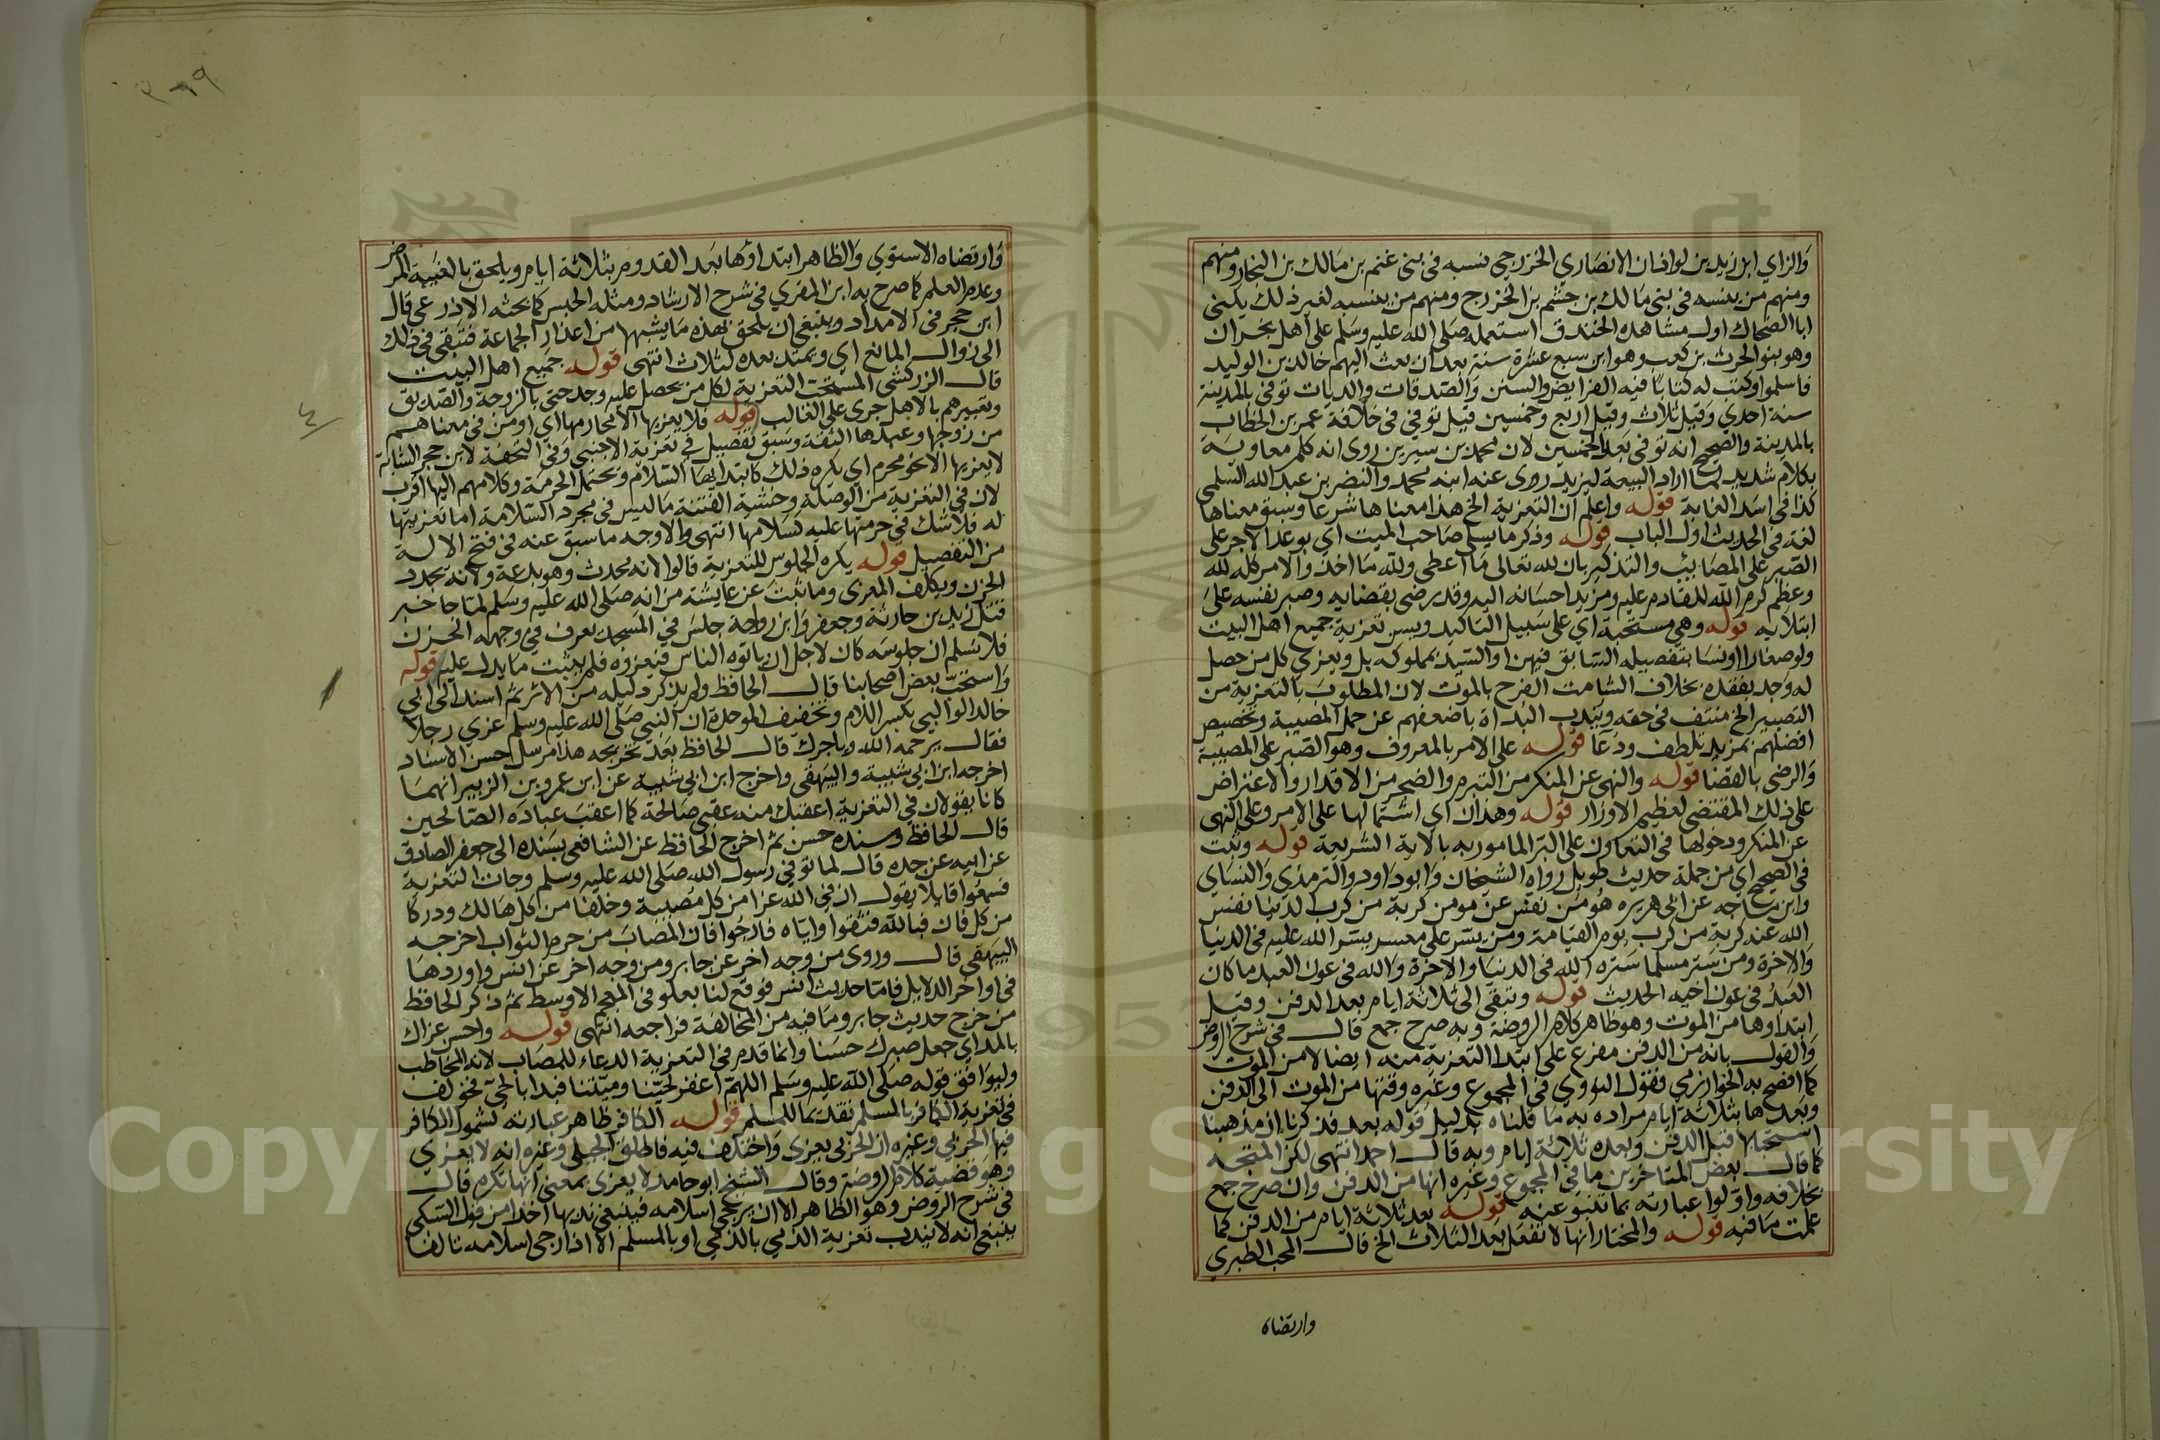 والزاي ابن زيد بن لوذان الانصاري الخزرجي نسبه في بني غنم بن مالك بن النجار ومنهم
ومنهم من ينسبه في بني مالك بن جشم بن الخزرج ومنهم من ينسبه لغير ذلك يكنى
ابا الضحاك اول مشاهده الخندق استعمله صلى الله عليه وسلم على اهل نجران
وهو بنو الحرث بن كعب وهو ابن سبع عشرة سنة بعد ان بعث اليهم خالد بن الوليد
فاسلموا وكتب له كتابا فيه الفرايض والسنن والصدقات والديات توفي بالمدينة
سنة احدي وقيل ثلاث وقيل اربع وخمسين قيل توفي في خلافة عمر بن الخطاب
بالمدينة والصحيح انه توفي بعد الخمسين لان محمد بن سيرين روى انه كلم معاوية
بكلام شديد لما اراد البيعة ليزيد روى عنه ابنه محمد والنضر بن عبد الله السلمي
كذا في اسد الغابة قوله واعلم ان التعزية الخ هذا معناها شرعا وسبق معناها
لغة في الحديث اول الباب قوله وذكر ما يسلي صاحب الميت اي بوعد الاجر على
الصبر على المصائب والتذكير بان لله تعالى ما اعطى ولله ما اخذ والامر كله لله
وعظم كرم الله للقادم عليه ومزيد احسانه اليه وقد رضي بقضايه وصبر نفسه على
ابتلايه قوله وهي مستحبة اي على سبيل التاكيد ويسن تعزية جميع اهل البيت
ولو صغارا او نسا بتفصيله السابق فيهن او السيد بمملوكه بل ويعزي كل من حصل
له وجد بفقده بخلاف الشامت الفرح بالموت لان المطلوب بالتعزية من
التصبير الخ منتف في حقه ويندب البداة باضعفهم عن حمل المصيبة وتخصيص
افضلهم بمزيد تلطف ودعا قوله على الامر بالمعروف وهو الصبر على المصيبة
والرضى بالقضا قوله والنهى عن المنكر من التبرم والضجر من الاقدار والاعتراض
على ذلك المقتضى لعظيم الاوزار قوله وهذان اي اشتمالها على الامر وعلى النهى
عن المنكر ودخولها في التعاون على البر المامور به بالاية الشريعة قوله وثبت
في الصحيح اي من جملة حديث طويل رواه الشيخان وابو داود والترمذي والنساي
وابن ماجه عن ابي هريره هو من نفس عن مومن كربة من كرب الدنيا نفس
الله عنه كربة من كرب يوم القيامة ومن يسر على معسر يسر الله عليه في الدنيا
والاخرة ومن ستر مسلما ستره الله في الدنيا والاخرة والله في عون العبد ما كان
العبد في عون اخيه الحديث قوله وتبقى الى ثلاثة ايام بعد الدفن وقيل
ابتداوها من الموت وهو ظاهر كلام الروضة وبه صرح جمع قال في شرح الروض
والقول بانه من الدفن مفرع على ابتدا التعزية منه ايضا لا من الموت
كما افصح به الخوارزمي فقول النووي في المجموع وغيره وقتها من الموت الى الدفن
وبعدها بثلاثة ايام مراده به ما قلناه بدليل قوله بعد قد ذكرنا ان مذهبنا
استحبابها قبل الدفن وبعده ثلاثة ايام وبه قال احمد انتهى لكن المتجه
كما قال بعض المتاخرين ما في المجموع وغيره انها من الدفن وان صرح جمع
بخلافه واولوا عبارته بما تنبو عنه قوله بعد ثلاثة ايام من الدفن كما
علمت ما فيه قوله والمختار انها لا تفعل بعد الثلاث الخ قال المحب الطبري
وارتضاه
وارتضاه الاسنوي والظاهر ابتداؤها بعد القدوم بثلاثة ايام ويلحق بالغيبة المرض
وعدم العلم كما صرح به ابن المقري في شرح الارشاد ومثله الحبس كما بحثه الاذرعى قال
ابن حجر في الامداد وينبغي ان يلحق بهذه ما يشبهها من اعذار الجماعة فتبقى في ذلك
الى زوال المانع اي ويمتد بعده لثلاث انتهى قوله جميع اهل البيت
قال الزركشي المستحب التعزية لكل من يحصل عليه وجد حتى بالزوجة والصديق
وتعبيرهم بالاهل جرى على الغالب قوله فلا يعزيها الا محارمها اي او من في معناهم
من زوجها وعبدها الثقة وسبق تفصيل في تعزية الاجنبي وفي التحفة لابن حجر الشابة
لا يعزيها الا نحو محرم اي يكره ذلك كابتدايها السلام ويحتمل الحرمة وكلامهم اليها اقرب
لان في التعزية من الوصلة وخشية الفتنة ما ليس في مجرد السلامة اما تعزيتها
له فلا شك في حرمتها عليه كسلامها انتهى والاوجه ما سبق عنه في فتح الاله
من التفصيل قوله يكره الجلوس للتعزية قالوا لانه محدث وهو بدعة ولانه يجدد
الحزن ويكلف المعزى وما ثبت عن عايشة من انه صلى الله عليه وسلم لما جا خبر
قتل زيد بن حارثة وجعفر وابن رواحة جلس في المسجد يعرف في وجهه الحزن
فلا نسلم ان جلوسه كان لاجل ان ياتوه الناس فيعزوه فلم يثبت ما يدل عليه قوله
واستحب بعض اصحابنا قال الحافظ ولم يذكر دليله من الاثر ثم اسند الى ابي
خالد الوالبي بكسر اللام وتخفيف الموحدة ان النبي صلى الله عليه وسلم عزي رجلا
فقال يرحمه الله وياجرك قال الحافظ بعد تخريجه هذا مرسل حسن الاسناد
اخرجه ابن ابي شيبة والبيهقي واخرج ابن ابي شيبة عن ابن عمرو بن الزبير انهما
كانا يقولان في التعزية اعقبك منه عقبى صالحة كما اعقب عباده الصالحين
قال الحافظ وسنده حسن ثم اخرج الحافظ عن الشافعي بسنده الى جعفر الصادق
عن ابيه عن جده قال لما توفي رسول الله صلى الله عليه وسلم وجات التعزية
فسمعوا قايلا يقول ان في الله عزا من كل مصيبة وخلفا من كل هالك ودركا
من كل فات فبالله فثقوا واياه فارجوا فان المصاب من حرم الثواب اخرجه
البيهقي قال وروى من وجه اخر عن جابر ومن وجه اخر عن انس واوردها
في اواخر الدلايل فاما حديث انس فوقع لنا بعلو في المعجم الاوسط ثم ذكر الحافظ
من خرج حديث جابر وما فيه من المخالفة فراجعه انتهى قوله واحسن عزاك
بالمد اي جعل صبرك حسنا وانما قدم في التعزية الدعاء للمصاب لانه المخاطب
وليوافق قوله صلى الله عليه وسلم اللهم اغفر لحينا وميتنا فبدا بالحي فخولف
في تعزية الكافر بالمسلم تقديما للمسلم قوله الكافر ظاهر عبارته لشمول الكافر
فيها الحربي وغيره ان الحربي يعزى واختلف فيه فاطلق الجيلي وغيره انه لا يعزي
وهو قضية كلام الروضة وقال الشيخ ابو حامد لا يعزى بمعنى انها تكره قال
في شرح الروض وهو الظاهر الا ان يرجى اسلامه فينبغي ندبها اخذا من قول السبكي
ينبغي انه لا يندب تعزية الذمي بالذمي او بالمسلم الا اذا رجى اسلامه تالفا